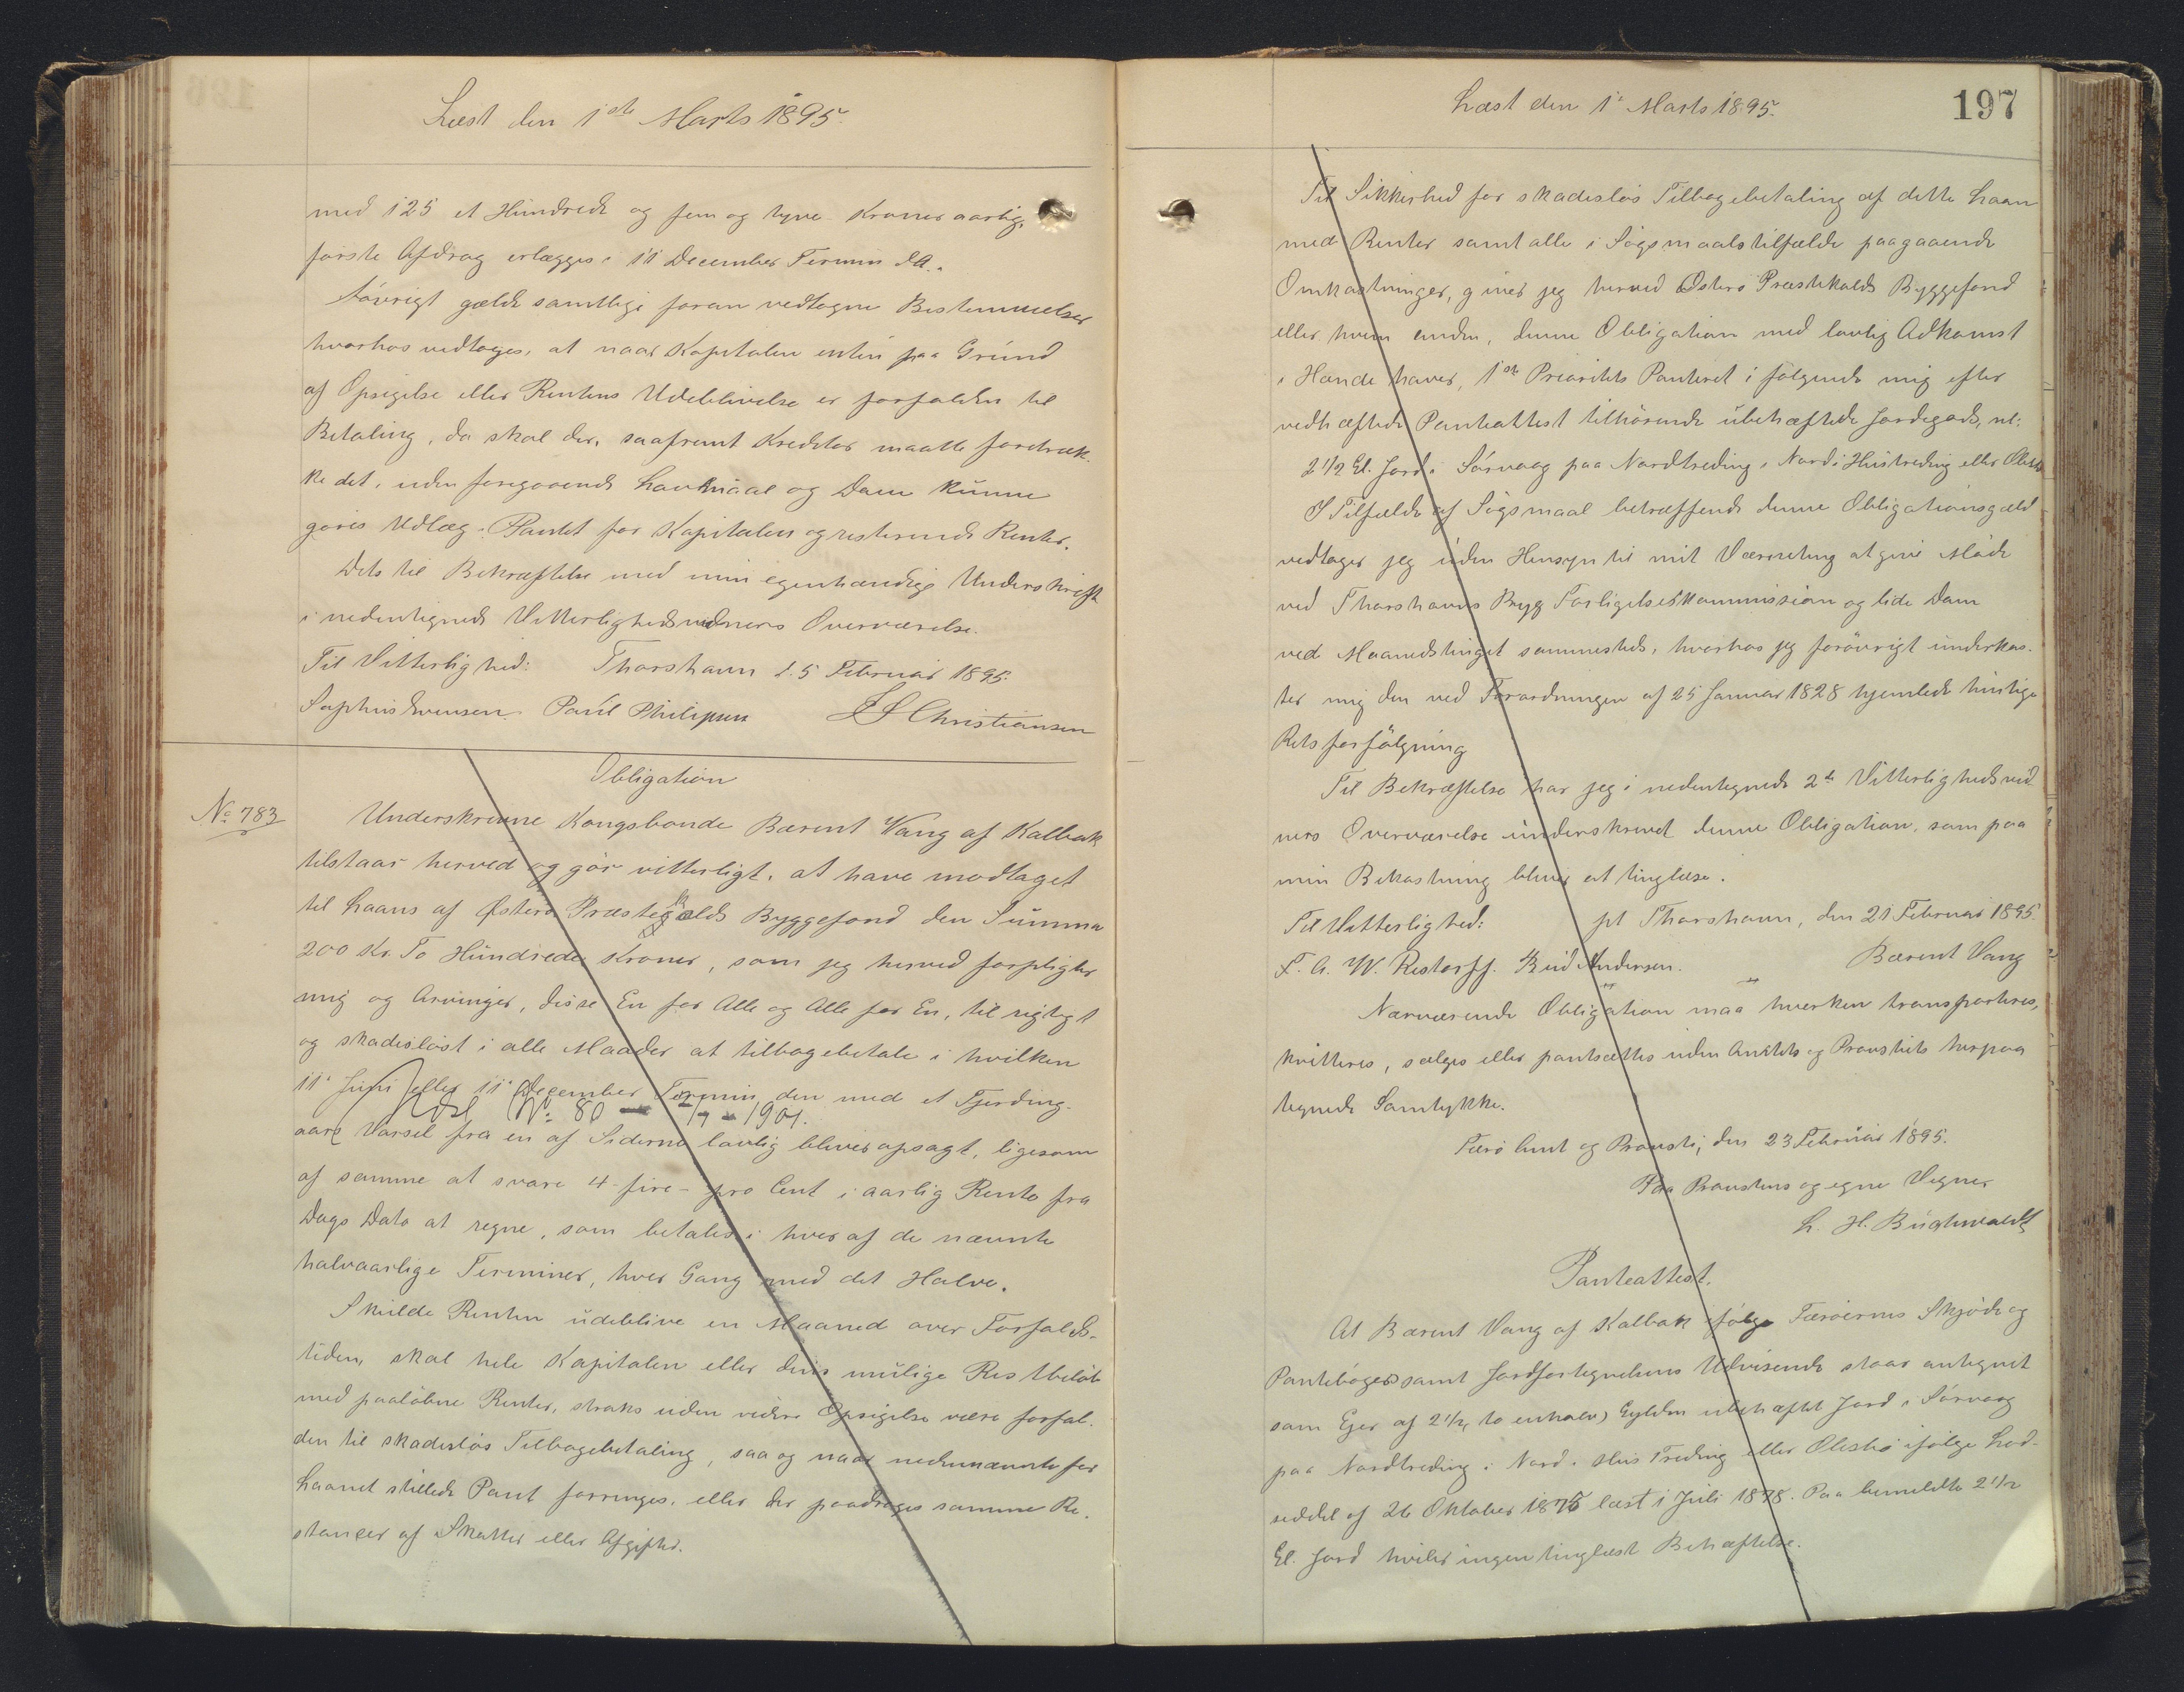 Læst den 1ste Marts 1895.
med 125 et Hundrede og fem og tyve Kroner aarlig,
første Afdrag erlægges i 11 December Termin d.A.
Iøvrigt gælde samtlige foran vedtagne Bestemmelser
hvorhos vedtages, at naar Kapitalen enten paa Grund
af Opsigelse eller Rentens Udeblivelse er forfalden til
Betaling, da skal der, saafremt Kreditor maatte foretræk-
ke det, uden foregaaende Lavmaal og Dom kunne
gøres Udlæg i Pantet for Kapitalen og resterende Renter.
Dets til Bekræftelse med min egenhændige Underskrift
i nedentegnede Vitterlighedsvidners Overværelse.
Til Vitterlighed: Thorshavn d. 5 Februar 1895.
Sophus Evensen Paul Philipsen Christiansen
Obligation
No 783
Underskrevne Kongsbonde Barent Vang af Kalbak
tilstaar herved og gør vitterligt, at have modtaget
til Laans af Østerø Præstekalds Byggefond den Summa
200 Kr. To Hundrede Kroner, som jeg herved forpligter
mig og Arvinger, disse En for Alle og Alle for En, til rigtigt
og skadesløst i alle Maader at tilbagebetale i hvilken
11 Juni eller 11 December Termin, den med et Fjerding-
Udsl No 80 - 1/7 - 1901.
aars Varsel fra en af Siderne lovlig bliver opsagt, ligesom
af samme at svare 4 - fire - pro Cent i aarlig Rente fra
Dags Dato at regne, som betales i hver af de nævnte
halvaarlige Terminer, hver Gang med det Halve.
Skulde Renten udeblive en Maaned over Forfalds-
tiden, skal hele Kapitalen eller dens mulige Restbeløb
med paaløbne Renter, straks uden videre Opsigelse være forfal-
den til skadesløs Tilbagebetaling, saa og naar nedennævnte for
Laanet stillede Pant forringes, eller der paadrages samme Re-
stancer af Skatter eller Afgifter.
Læst den 1' Marts 1895.
197
Til Sikkerhed for skadesløs Tilbagebetaling af dette Laan
med Renter samt alle i Søgsmaalstilfælde paagaaende
Omkostninger, giver jeg herved Østerø Præstekalds Byggefond
eller hvem enden, denne Obligation med lovlig Adkomst
i Hænde haver, 1ste Prioritets Panteret i følgende mig efter
vedhæftede Panteattest tilhørende ubehæftede Jordegods, nl:
2 1/2 Gl. Jord i Sørvaag paa Nordtreding i Nord i Hustreding eller
I Tilfælde af Søgsmaal betræffende denne Obligationsgæld
vedtager jeg uden Hensyn til mit Værneting at give Møde
ved Thorshavns Bygs Forligelseskommission og lide Dom
ved Maanedstinget sammesteds, hvorhos jeg forøvrigt underkas-
ter mig den ved Forordningen af 25 Januar 1828 hjemlede hurtige
Retsforfølgning
Til Bekræftelse har jeg i nedentegnede 2de Vitterlighedsvid
ners Overværelse underskrevet denne Obligation, som paa
min Bekostning bliver at tinglæse.
Til Vitterlighed: pt Thorshavn, den 21 Februar 1895.
F. A. W. Restorff. Andersen. Barent Vang
Nærværende Obligation maa hverken transporteres,
kvitteres, sælges eller pantsættes uden Amtets og Provstiets herpaa
tegnede Samtykke.
Færø Amt og Provsti, den 23 Februar 1895.
Paa Provstens og egne Vegne
L. H. Buchwaldt
Panteattest.
At Barent Vang af Kalbak ifølge Færøernes Skjøde og
Pantebøger samt Jordfortegnelsens Udvisende staar antegnet
som Ejer af 2 1/2, to enhalv) Gylden ubehæftet Jord i Sørvaag
paa Nordtreding i Nord i Hus Treding eller ifølge Lod-
seddel af 26 Oktober 1875 læst i Juli 1878. Paa bemeldte 2 1/2
Gl. Jord hviler ingen tinglæst Behæftelse.